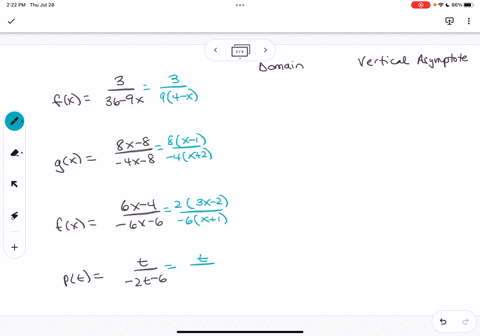 2:22 PM Thu Jul 28
86%
Domain Vertical Asymptote
f(x) = 3/(36-9x) = 3/(9(4-x))
g(x) = (8x-8)/(-4x-8) = 8(x-1)/(-4(x+2))
f(x) = (6x-4)/(-6x-6) = 2(3x-2)/(-6(x+1))
p(t) = t/(-2t-6) = t/